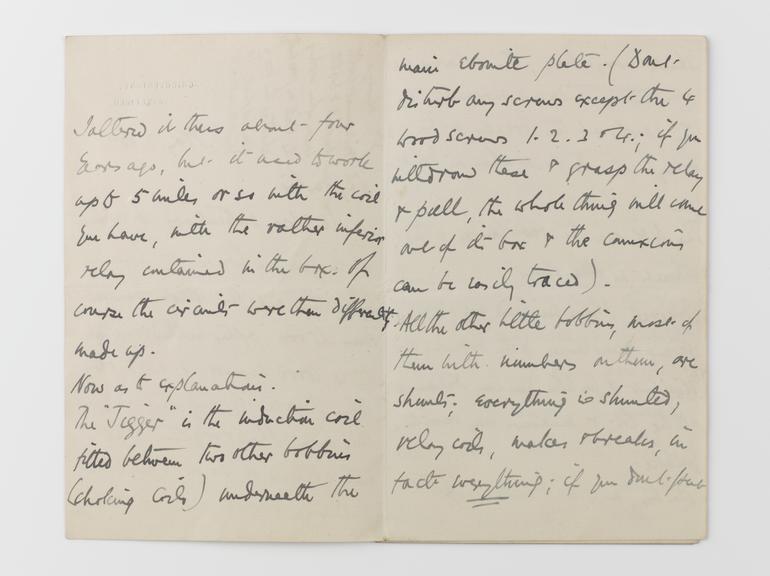 I altered it thus about four
years ago, but it used to work
up to 5 miles or so with the coil
you have, with the rather inferior
relay contained in the box. Of
course the circuits were then differently
made up.
Now as to explanations.
The "Jigger" is the induction coil
fitted between two other bobbins
(choking coils) underneath the
main ebonite plate. (Dont
disturb any screws except the 4
wood screws 1. 2. 3 or 4.; if you
withdraw these & grasp the relay
& pull, the whole thing will come
out of its box & the connexions
can be easily traced).
All the other little bobbins, most of
them with numbers on them, are
shunts; everything is shunted,
relay coils, makes & breaks, in
fact everything; if you dont shunt